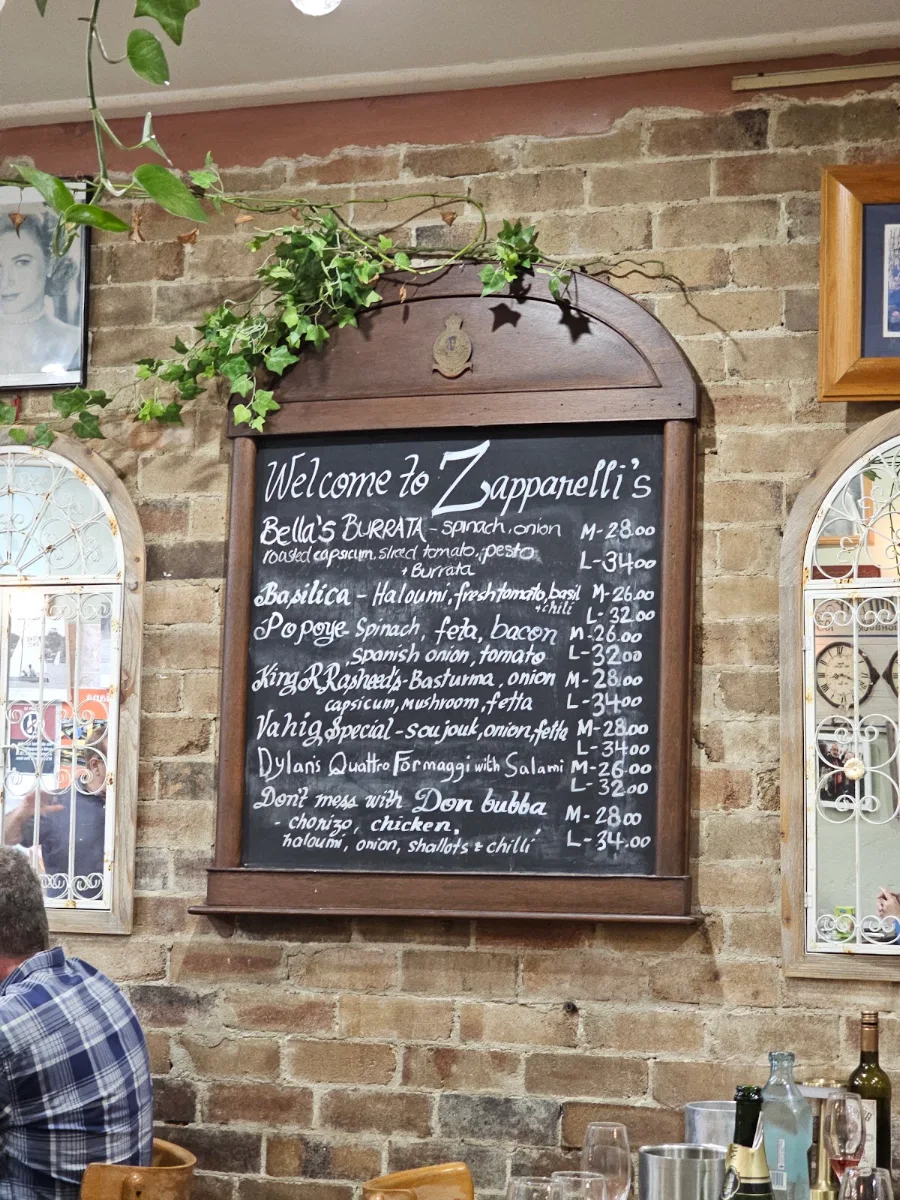 Welcome to Zapparelli's
Bella's BURRATA - spinach, onion M - 28.00
roasted capsicum, sliced tomato, pesto L - 34.00
+ Burrata
Basilica - Haloumi, fresh tomato, basil M - 26.00
+ chili L - 32.00
Popoye - Spinach, feta, bacon M - 26.00
Spanish onion, tomato L - 32.00
King R Rasheed's - Basturma, onion M - 28.00
capsicum, mushroom, fetta L - 34.00
Vahig Special - soujouk, onion, fetta M - 28.00
L - 34.00
Dylan's Quattro Formaggi with Salami M - 26.00
L - 32.00
Don't mess with Don bubba M - 28.00
- chorizo, chicken,
haloumi, onion, shallots & chilli L - 34.00